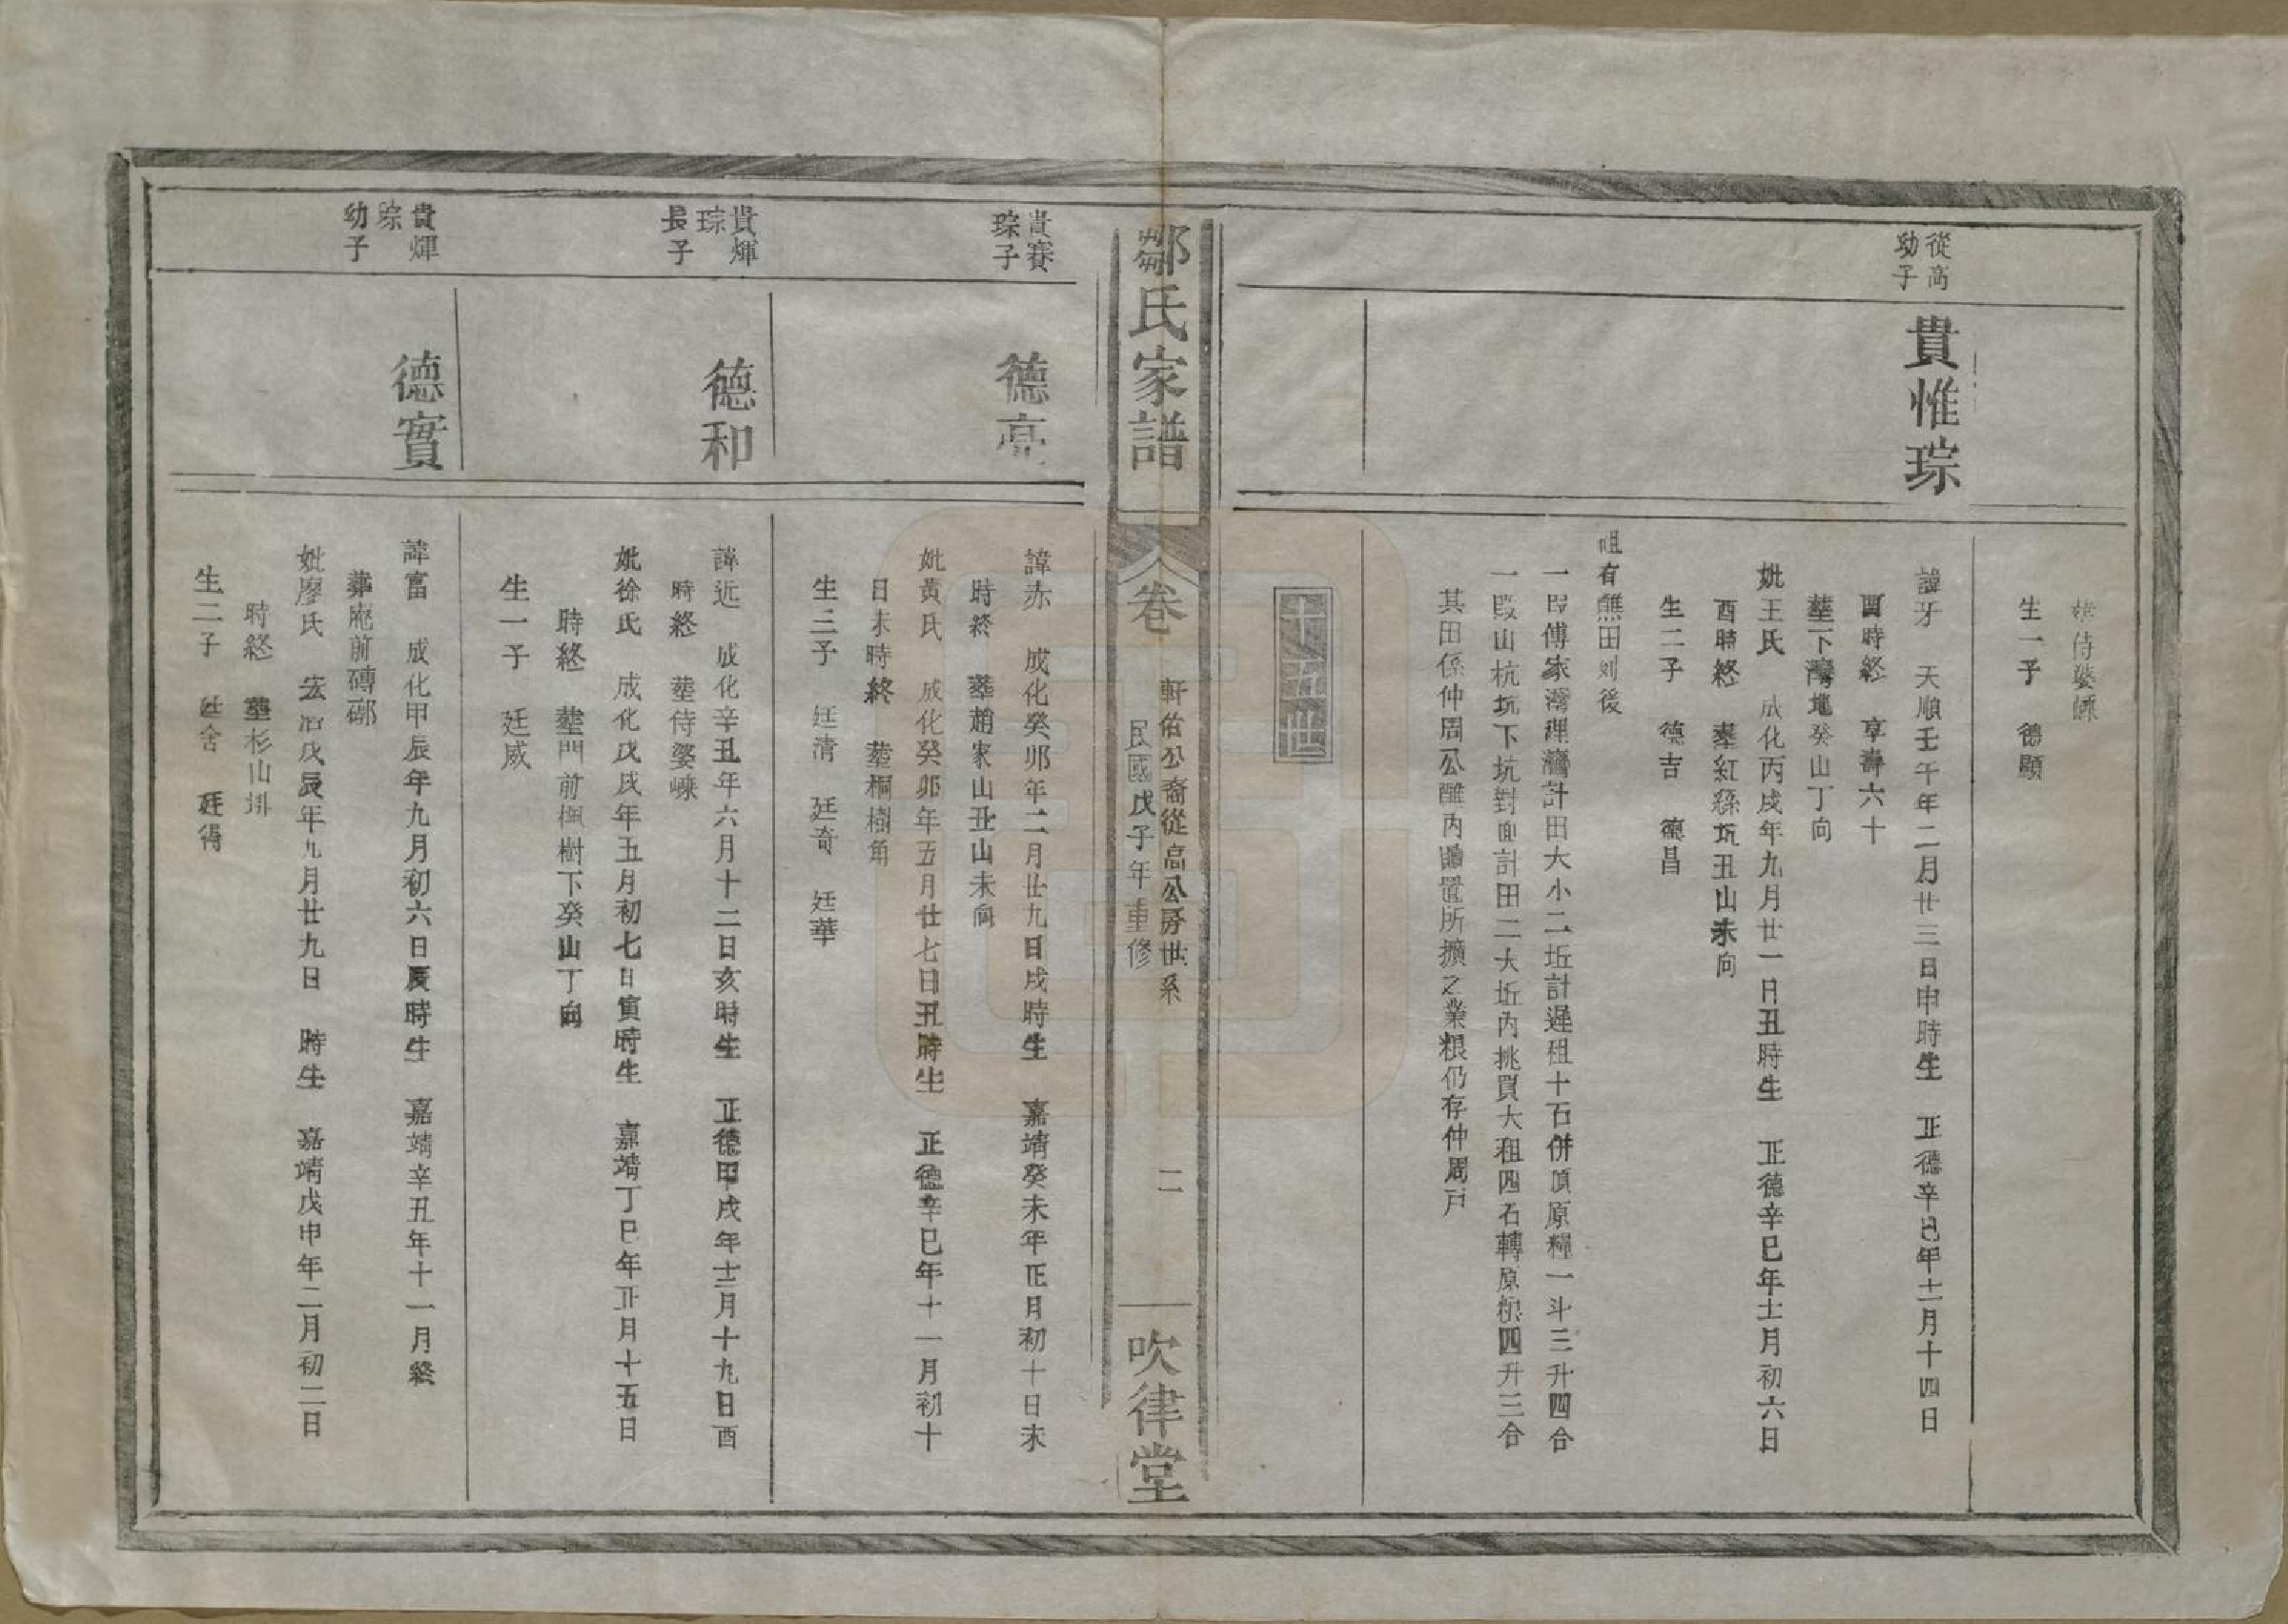 侍婆嵊
生一子　德顯
從高
幼子
貴惟琮
諱牙　天順壬午年二月廿三日申時生　正德辛巳年十二月十四日
酉時終　享壽六十
塟下灣墘癸山丁向
妣王氏　成化丙戌年九月廿一日丑時生　正德辛巳年十二月初六日
酉時終　塟紅縣坑丑山未向
生二子　德吉　德昌
祖有醮田列後
一段傅家灣裡灣計田大小二坵計遲租十石併頂原糧一斗三升四合
一段山杭坑下坑對面計田二大坵內挑買大租四石轉原粮四升三合
其田係仲周公醮內贍置所擴之業粮仍存仲周戶
十五世
鄒氏家譜
卷
軒佑公裔從高公房世系
民國戊子年重修
二
吹律堂
貴賽
琮子
德亮
諱赤　成化癸卯年二月廿九日戌時生　嘉靖癸未年正月初十日未
時終　塟趙家山丑山未向
妣黃氏　成化癸卯年五月廿七日丑時生　正德辛巳年十一月初十
日未時終　塟桐樹角
生三子　廷清　廷奇　廷華
貴煇
琮
長子
德和
諱近　成化辛丑年六月十二日亥時生　正德甲戌年十二月十九日酉
時終　塟侍婆嵊
妣徐氏　成化戊戌年五月初七日寅時生　嘉靖丁巳年正月十五日
時終　塟門前楓樹下癸山丁向
生一子　廷威
貴煇
琮
幼子
德實
諱富　成化甲辰年九月初六日辰時生　嘉靖辛丑年十一月終
葬庵前磚𨛦
妣廖氏　宏治戊辰年九月廿九日　時生　嘉靖戊申年二月初二日
時終　塟杉山排
生二子　廷舍　廷得